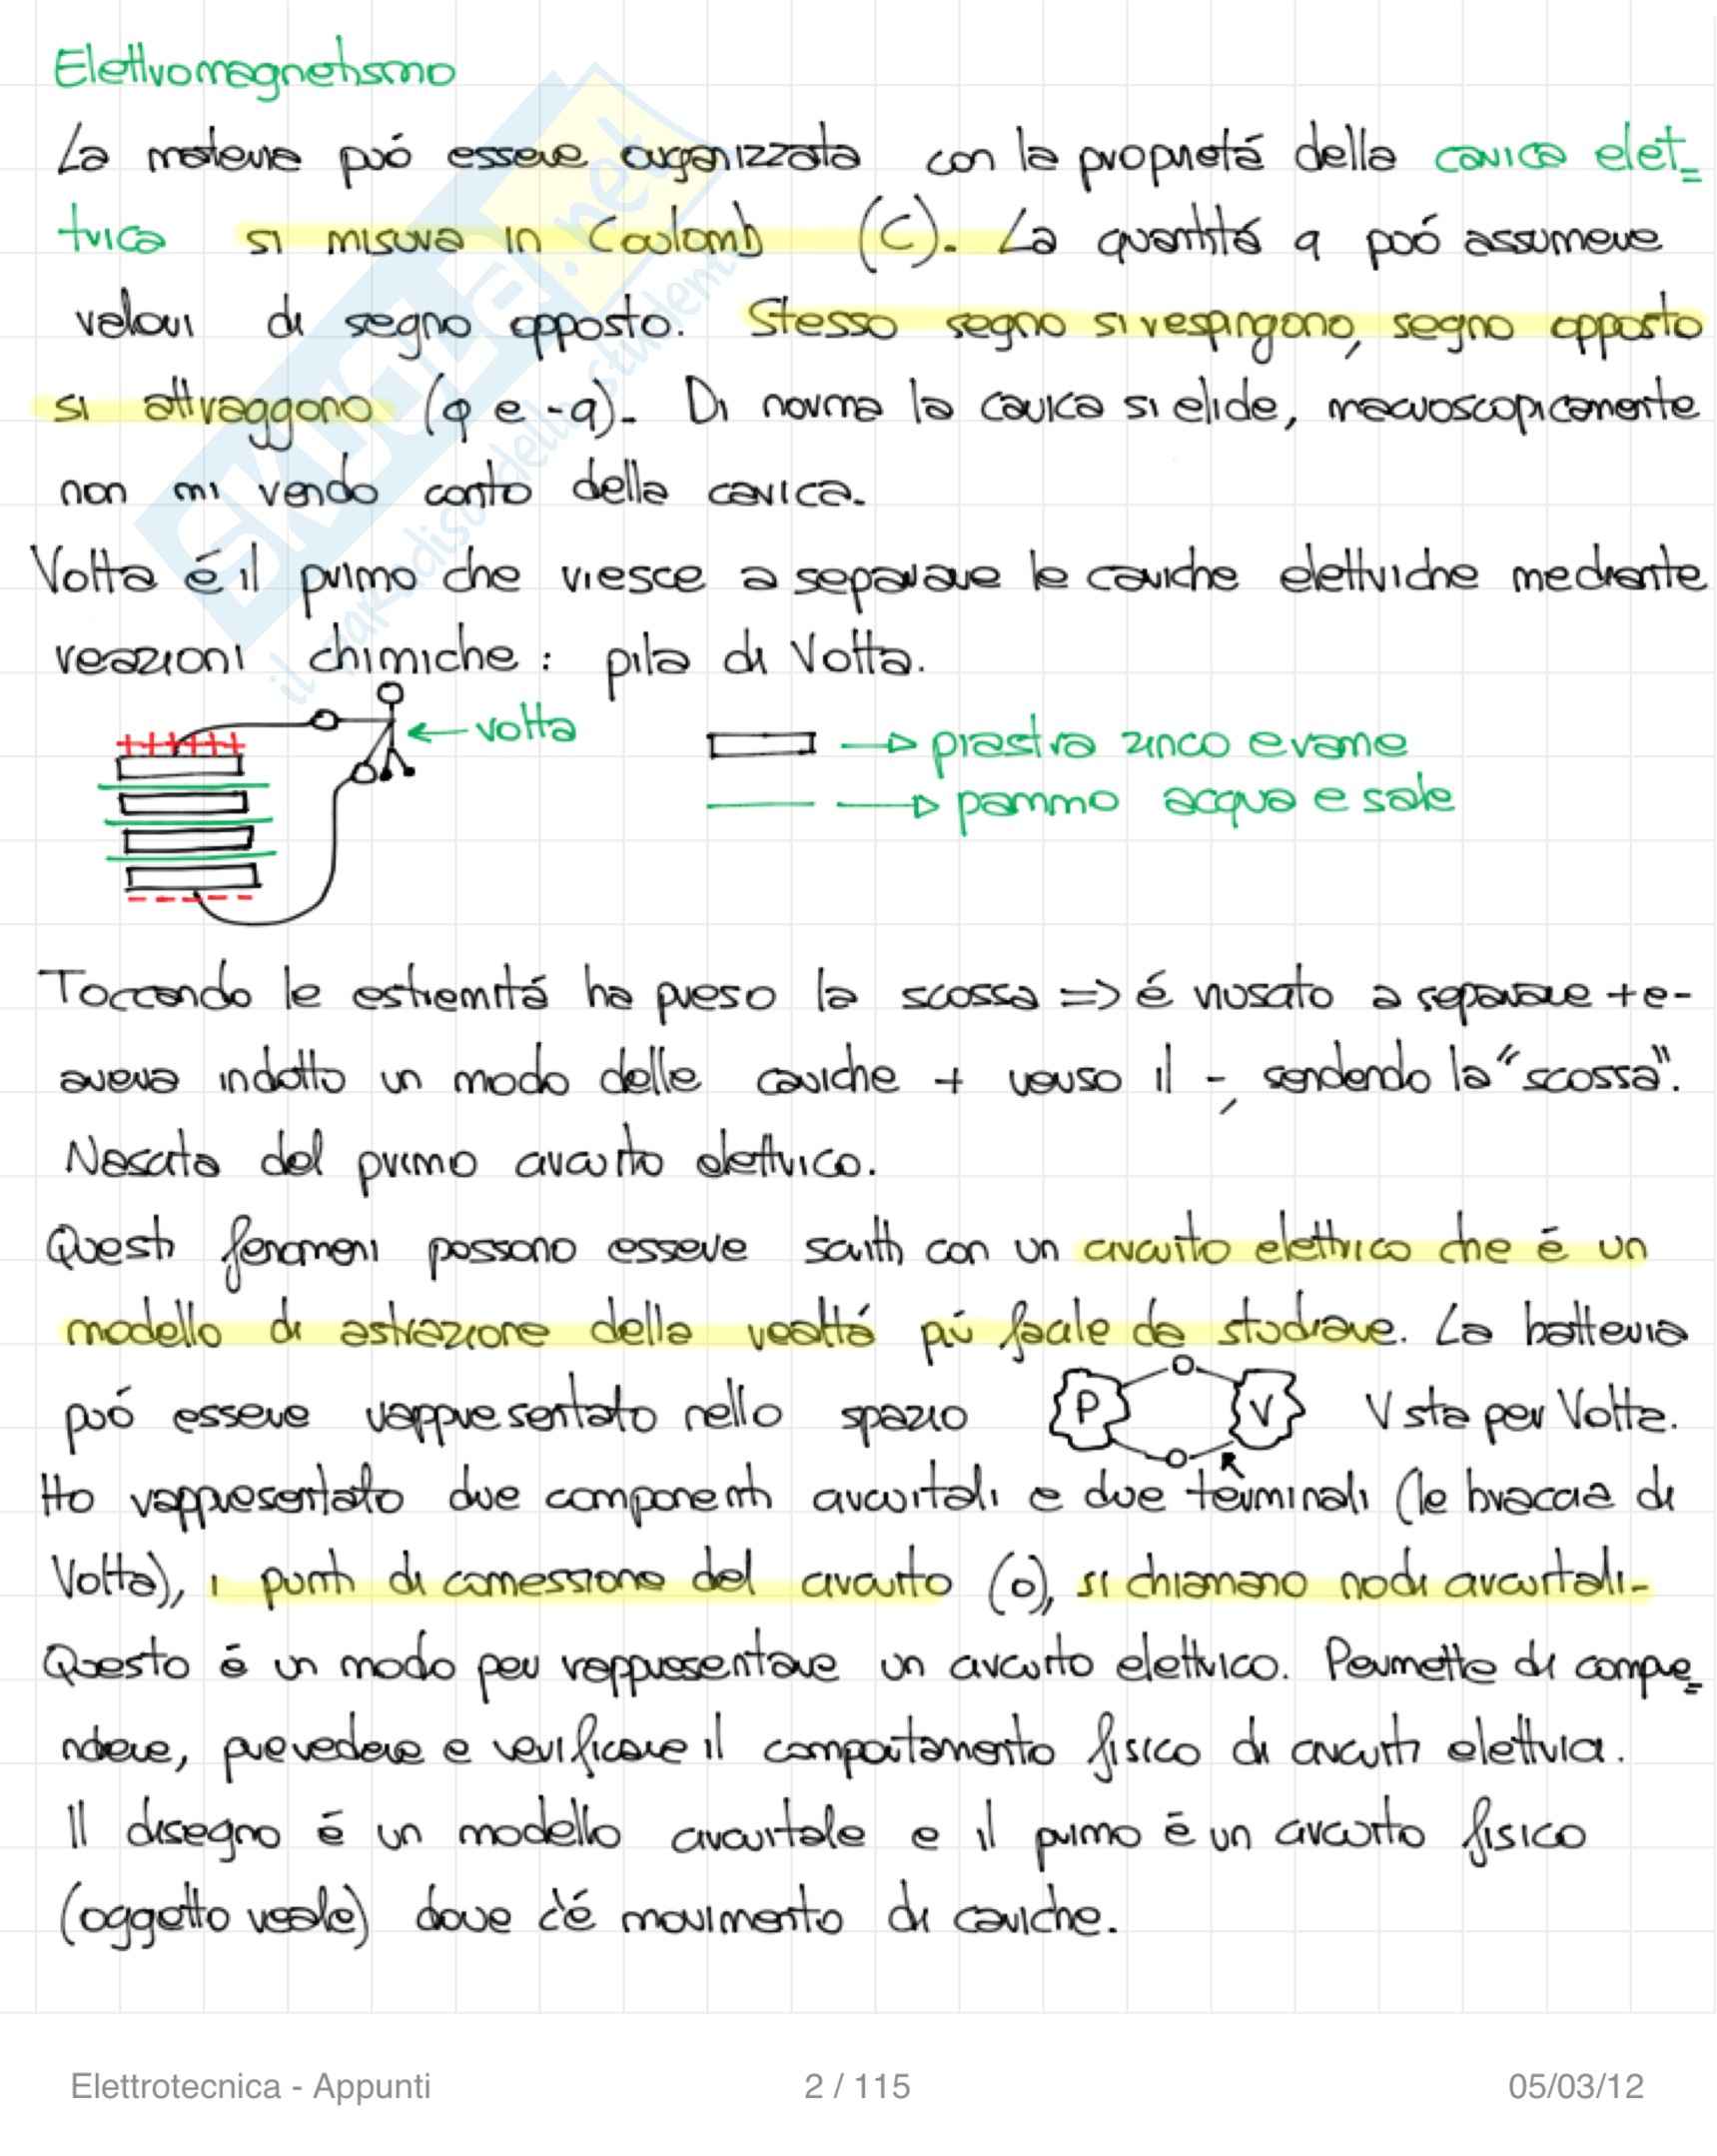 Elettromagnetismo
La materia può essere organizzata con la proprietá della carica elet=
trica si misura in Coulomb (C). La quantitá q poó assumere
valori di segno opposto. Stesso segno si respingono, segno opposto
si attraggono (q e -q). Di norma la carica si elide, macroscopicamente
non mi rendo conto della carica.
Volta é il primo che riesce a separare le cariche elettriche mediante
reazioni chimiche: pila di Volta.
volta
piastra zinco e rame
pammo acqua e sale
Toccando le estremitá ha preso la scossa => é riusato a separare + e -
aveva indotto un modo delle cariche + verso il -, sendendo la "scossa".
Nascita del primo circuito elettrico.
Questi fenomeni possono essere scritti con un circuito elettrico che é un
modello di astrazione della realtá piú facile da studiare. La batteria
puó essere rappresentato nello spazio P V V sta per Volta.
Ho rappresentato due componenti circuitali e due terminali (le braccia di
Volta), i punti di connessione del circuito (o), si chiamano nodi circuitali.
Questo é un modo per rappresentare un circuito elettrico. Permette di compre=
ndere, prevedere e verificare il comportamento fisico di circuiti elettrici.
Il disegno é un modello circuitale e il primo é un circuito fisico
(oggetto reale) dove c'é movimento di cariche.
SKUOLA.net
il paradiso dello studente
Elettrotecnica - Appunti 2 / 115 05/03/12